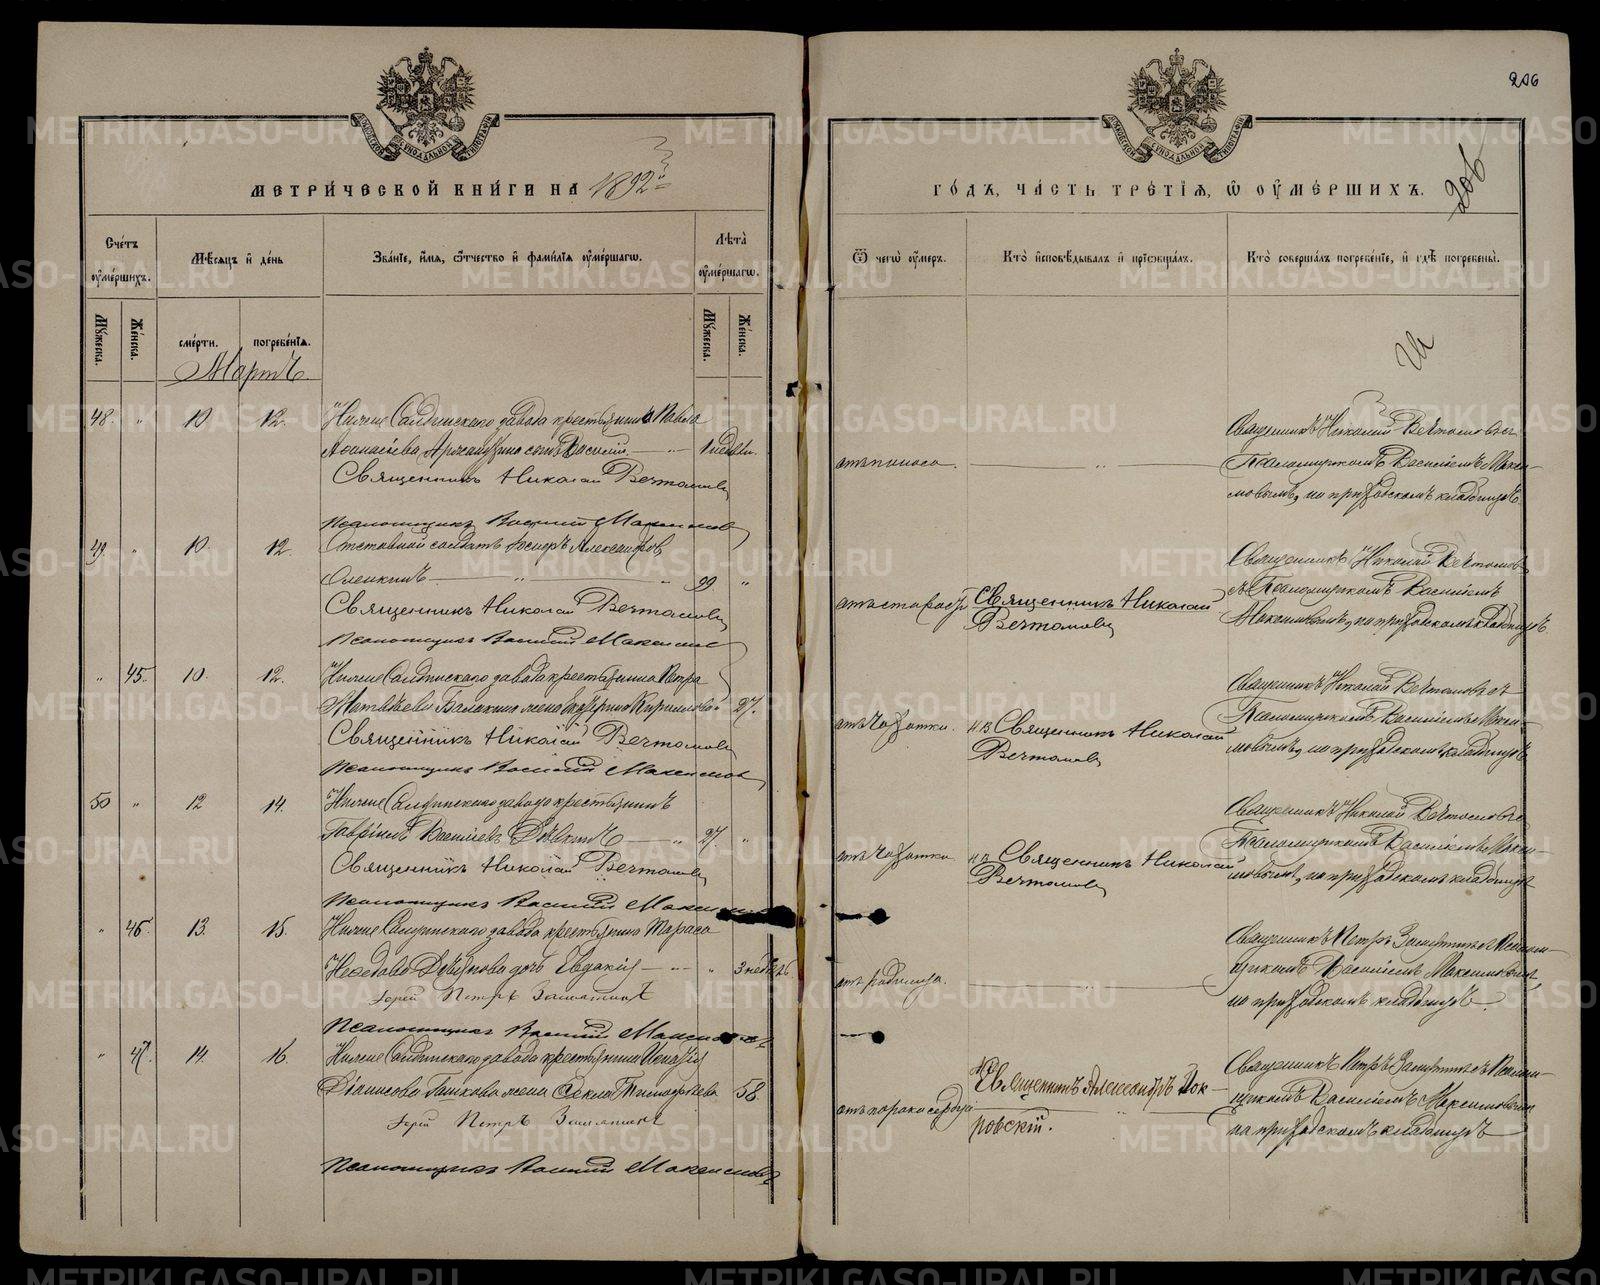 206
206
МЕТРИЧЕСКОЙ КНИГИ НА 1892
ГОДЪ, ЧАСТЬ ТРЕТІЯ, Ѿ ОУМЕРШИХЪ.
Счетъ оумершихъ.
Мѣсяцъ и день
Званіе, имя, ѿтчество и фамилія оумершагѡ.
Лѣта оумершагѡ.
Ѿ чегѡ оумеръ.
Кто исповѣдывалъ и пріѡбщалъ.
Кто совершалъ погребеніе, и гдѣ погребены.
Мужеска.
Женска.
смерти.
погребенія.
Мужеска.
Женска.
Мартъ.
48. " 10 12. Нижне Салдинскаго завода крестьянина Павла
Аѳанасіева сынъ Василій 1 недѣли.
Священникъ Николай Вечтомовъ
Псаломщикъ Василій Максимовъ
отъ поноса.
Священникъ Николай Вечтомовъ съ
Псаломщикомъ Василіемъ Макси-
мовымъ, на приходскомъ кладбищѣ
49. " 10. 12. Отставной солдатъ Александровъ
99 "
Священникъ Николай Вечтомовъ
Псаломщикъ Василій Максимовъ
отъ старости
Священникъ Николай
Вечтомовъ
Священникъ Николай Вечтомовъ
съ Псаломщикомъ Василіемъ
Максимовымъ, на приходскомъ кладбищѣ
" 45. 10. 12. Нижне Салдинскаго завода крестьянина Петра
Матвѣева жена Кириллова 27.
Священникъ Николай Вечтомовъ
Псаломщикъ Василій Максимовъ
отъ чахотки.
Священникъ Николай
Вечтомовъ
Священникъ Николай Вечтомовъ съ
Псаломщикомъ Василіемъ Макси-
мовымъ, на приходскомъ кладбищѣ
50 " 12 14. Нижне Салдинскаго завода крестьянинъ
Гавріилъ Васильевъ 27. "
Священникъ Николай Вечтомовъ
Псаломщикъ Василій
отъ чахотки
Священникъ Николай
Вечтомовъ
Священникъ Николай Вечтомовъ
Псаломщикомъ Василіемъ Макси-
мовымъ, на приходскомъ кладбищѣ
" 46. 13. 15. Нижне Салдинскаго завода крестьянина Тараса
дочь Евдокія " 3
Іерей Петръ
Псаломщикъ Василій
отъ родимца.
Священникъ Петръ съ Псалом-
щикомъ Василіемъ Максимовымъ
на приходскомъ кладбищѣ.
" 47. 14. 16. Нижне Салдинскаго завода крестьянина
жена Ѳекла Тимоѳеева 58.
Іерей Петръ
Псаломщикъ Василій Максимовъ
отъ порока сердца
Священникъ Александръ Пок-
ровскій.
Священникъ Петръ съ Псалом-
щикомъ Василіемъ Максимовымъ
на приходскомъ кладбищѣ
METRIKI.GASO-URAL.RU